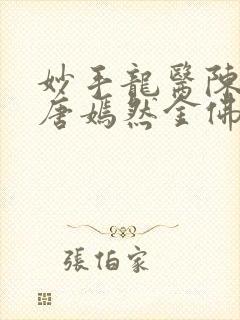 妙手龍醫陳
唐嫣然全佛
張伯家